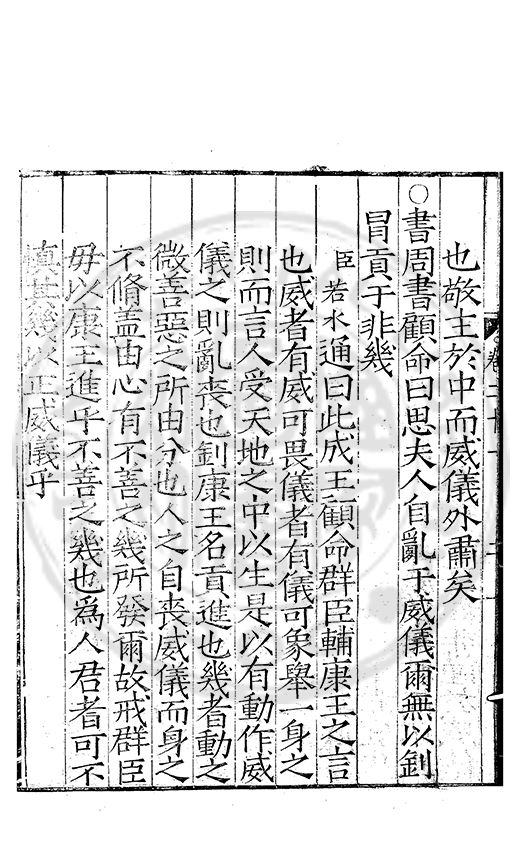 也敬主於中而威儀外肅矣
○書周書顧命曰思夫人自亂于威儀爾無以釗
冒貢于非幾
臣若水通曰此成王顧命群臣輔康王之言
也威者有威可畏儀者有儀可象舉一身之
則而言人受天地之中以生是以有動作威
儀之則亂喪也釗康王名貢進也幾者動之
微善惡之所由分也人之自喪威儀而身之
不脩盖由心有不善之幾所發爾故戒群臣
毋以康王進乎不善之幾也為人君者可不
慎其幾以正威儀乎